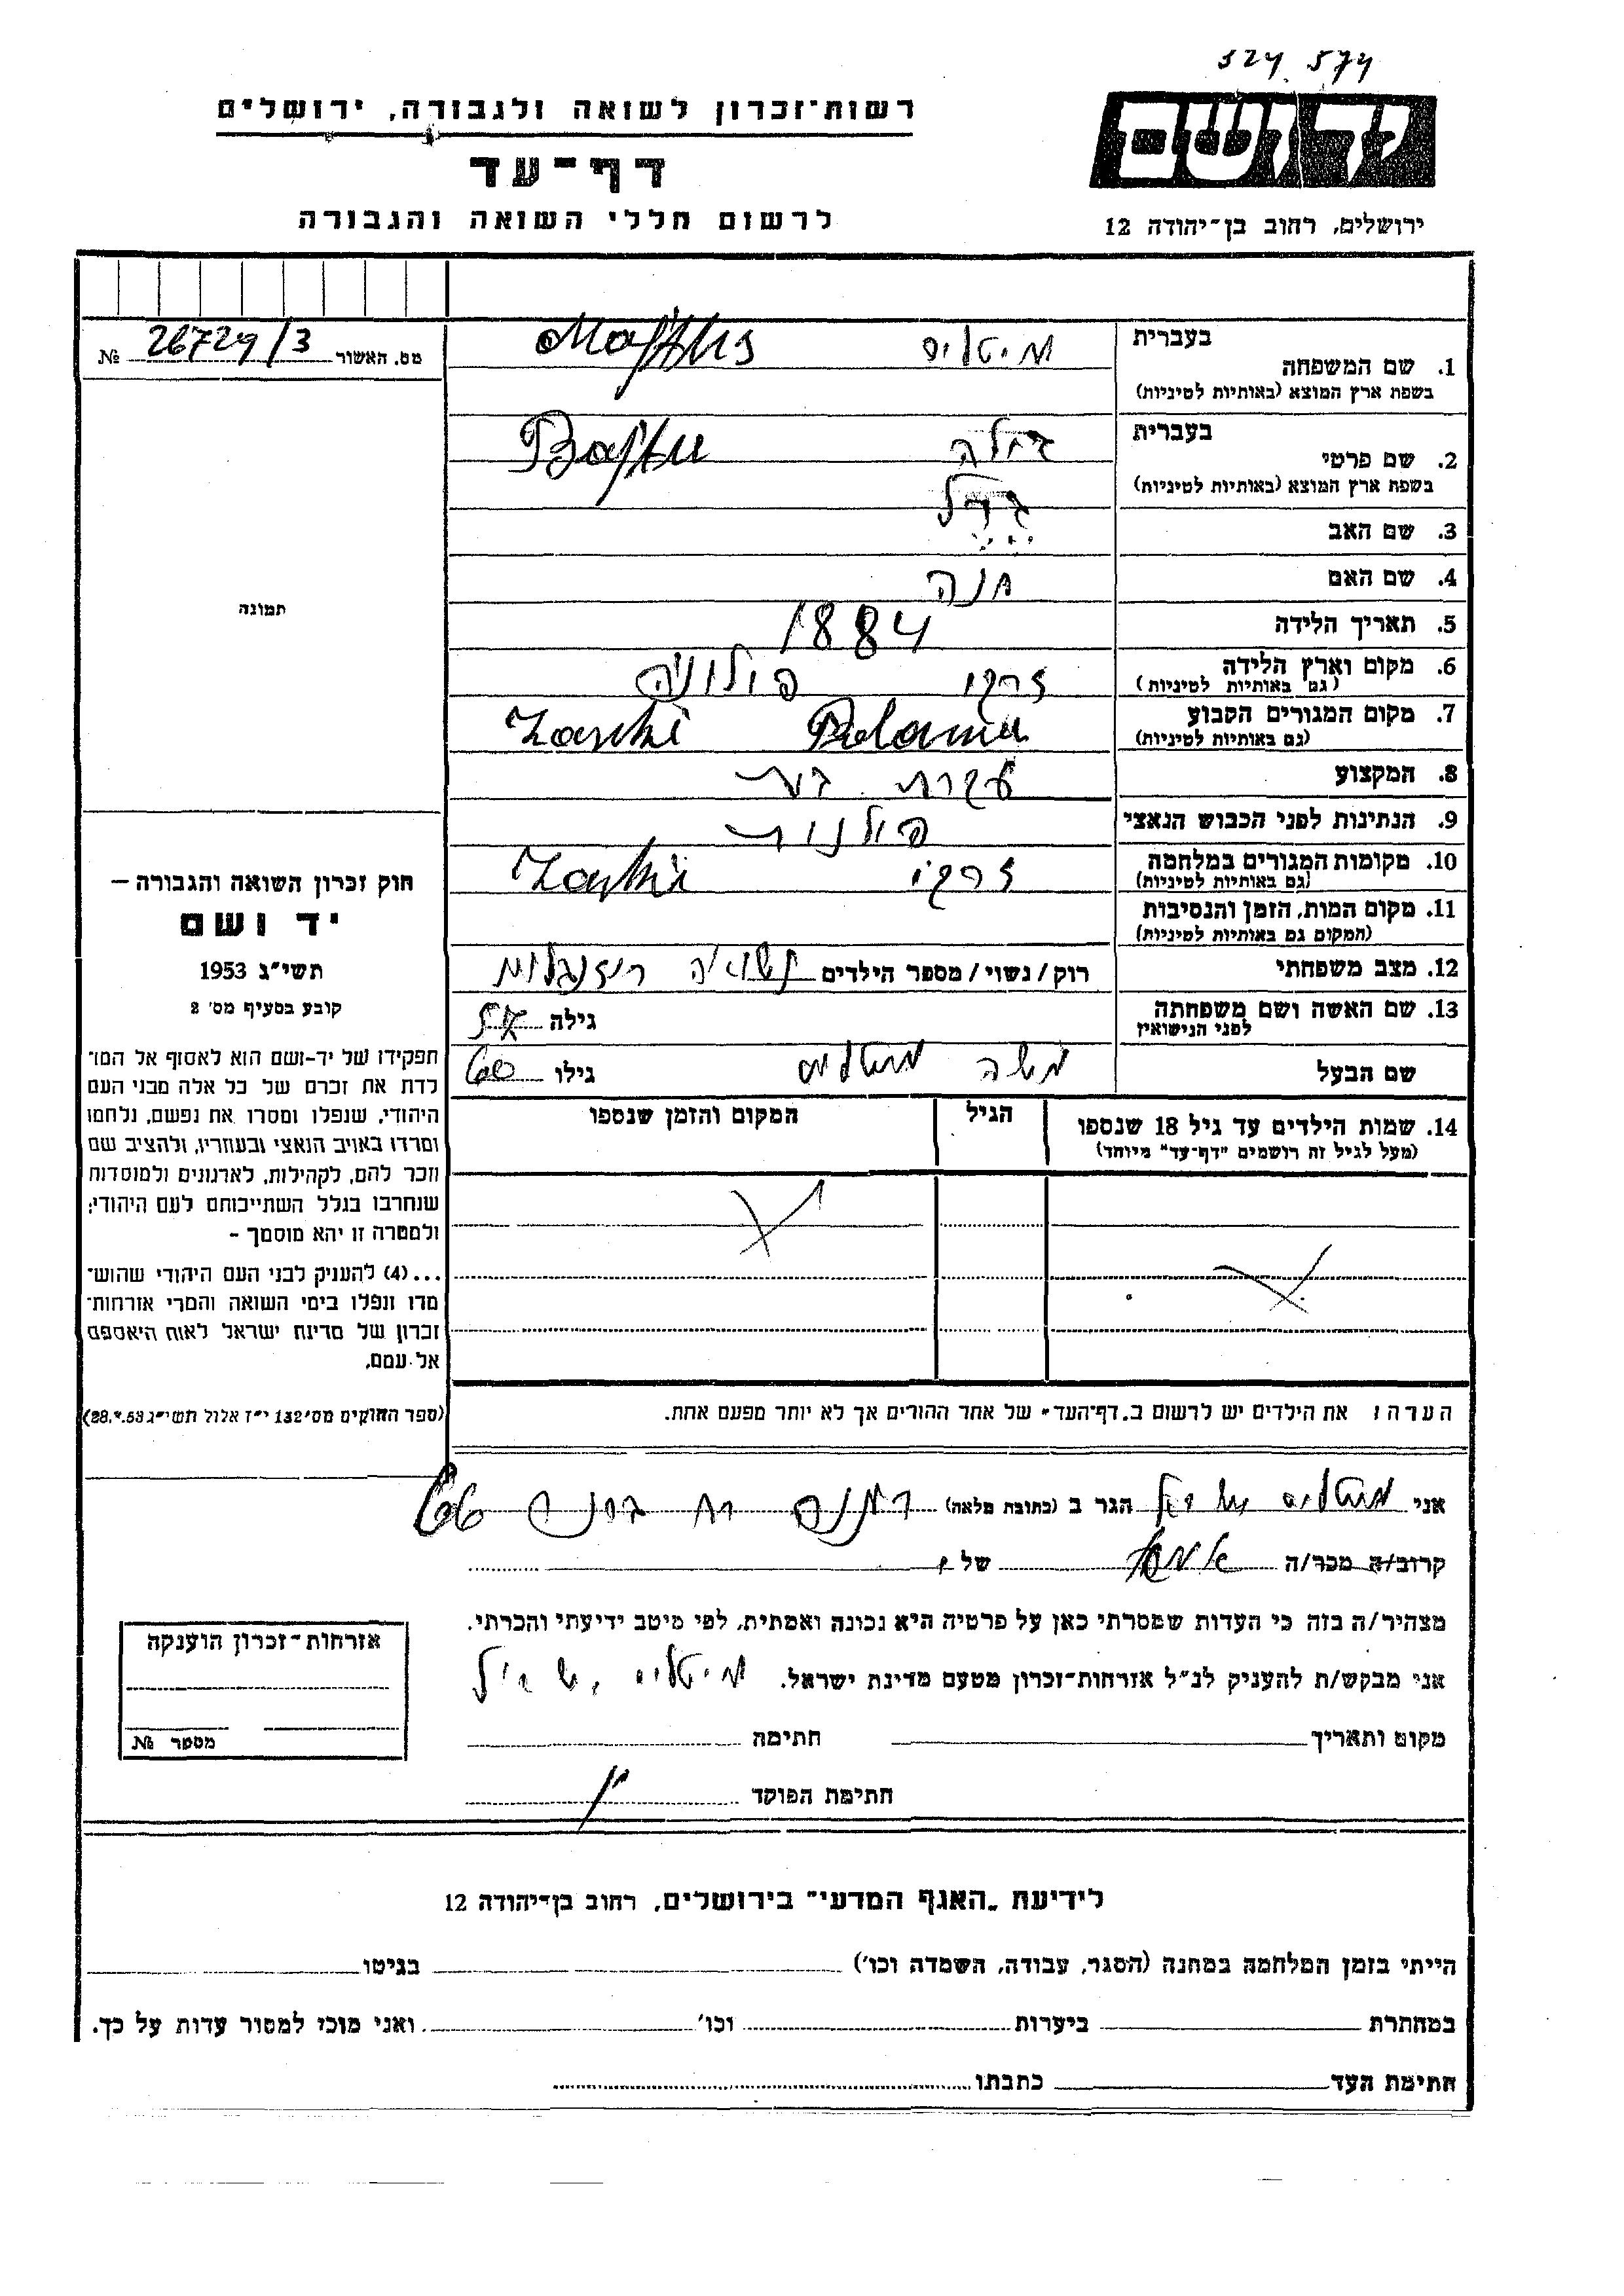 324 574
יד ושם
רשות-זכרון לשואה ולגבורה, ירושלים
דף-עד
לרשום חללי השואה והגבורה
ירושלים, רחוב בן-יהודה 12
מס. האשור № 26729/3
1. שם המשפחה בעברית מיטליס
בשפת ארץ המוצא (באותיות לטיניות)
2. שם פרטי בעברית
בשפת ארץ המוצא (באותיות לטיניות)
3. שם האב
4. שם האם חנה
5. תאריך הלידה 1884
6. מקום וארץ הלידה זרקי פולוניה
(גם באותיות לטיניות)
7. מקום המגורים הקבוע Zarki
(גם באותיות לטיניות)
8. המקצוע עקרת בית
9. הנתינות לפני הכבוש הנאצי פולנית
10. מקומות המגורים במלחמה זרקי Zarki
(גם באותיות לטיניות)
11. מקום המות, הזמן והנסיבות
(המקום גם באותיות לטיניות)
12. מצב משפחתי רוק/נשוי/מספר הילדים נשואה
13. שם האשה ושם משפחתה
לפני הנישואין גילה
שם הבעל משה מיטליס גילו 60
14. שמות הילדים עד גיל 18 שנספו הגיל המקום והזמן שנספו
(מעל לגיל זה רושמים "דף-עד" מיוחד)
הערה: את הילדים יש לרשום ב"דף-העד" של אחד ההורים אך לא יותר מפעם אחת.
אני מיטליס הגר ב (כתובת מלאה) 66
קרוב/ה מכר/ה של
מצהיר/ה בזה כי העדות שמסרתי כאן על פרטיה היא נכונה ואמתית, לפי מיטב ידיעתי והכרתי.
אני מבקש/ת להעניק לנ"ל אזרחות-זכרון מטעם מדינת ישראל. מיטליס
מקום ותאריך חתימה
חתימת הפוקד
תמונה
חוק זכרון השואה והגבורה –
יד ושם
תשי"ג 1953
קובע בסעיף מס' 2
תפקידו של יד-ושם הוא לאסוף אל המו־
לדת את זכרם של כל אלה מבני העם
היהודי, שנפלו ומסרו את נפשם, נלחמו
ומרדו באויב הנאצי ובעוזריו, ולהציב שם
וזכר להם, לקהילות, לארגונים ולמוסדות
שנחרבו בגלל השתייכותם לעם היהודי;
ולמטרה זו יהא מוסמך –
...(4) להעניק לבני העם היהודי שהוש־
מדו ונפלו בימי השואה והמרי אזרחות־
זכרון של מדינת ישראל לאות היאספם
אל עמם.
(ספר החוקים מס' 132 י"ז אלול תשי"ג 28.8.53)
אזרחות-זכרון הוענקה
מספר №
לידיעת "האגף המדעי" בירושלים, רחוב בן-יהודה 12
הייתי בזמן המלחמה במחנה (הסגר, עבודה, השמדה וכו') בגיטו
במחתרת ביערות וכו' ואני מוכן למסור עדות על כך.
חתימת העד כתבתו